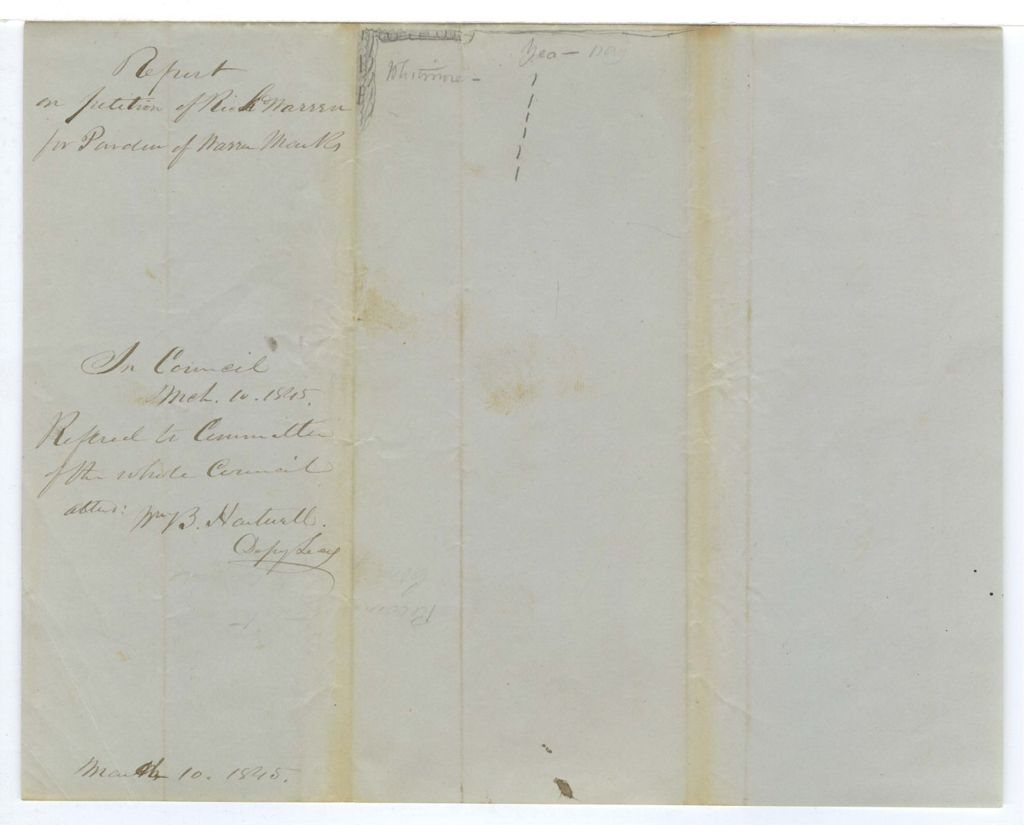 Report
on petition of Rich Warren
for Pardon of Warren Marks
In Council
Mch. 10. 1845.
Referred to Committee
of the whole Council
attest: Wm B. Hartwell.
Depy Secy
March 10. 1845.
Whitmore -
Yea - Nay